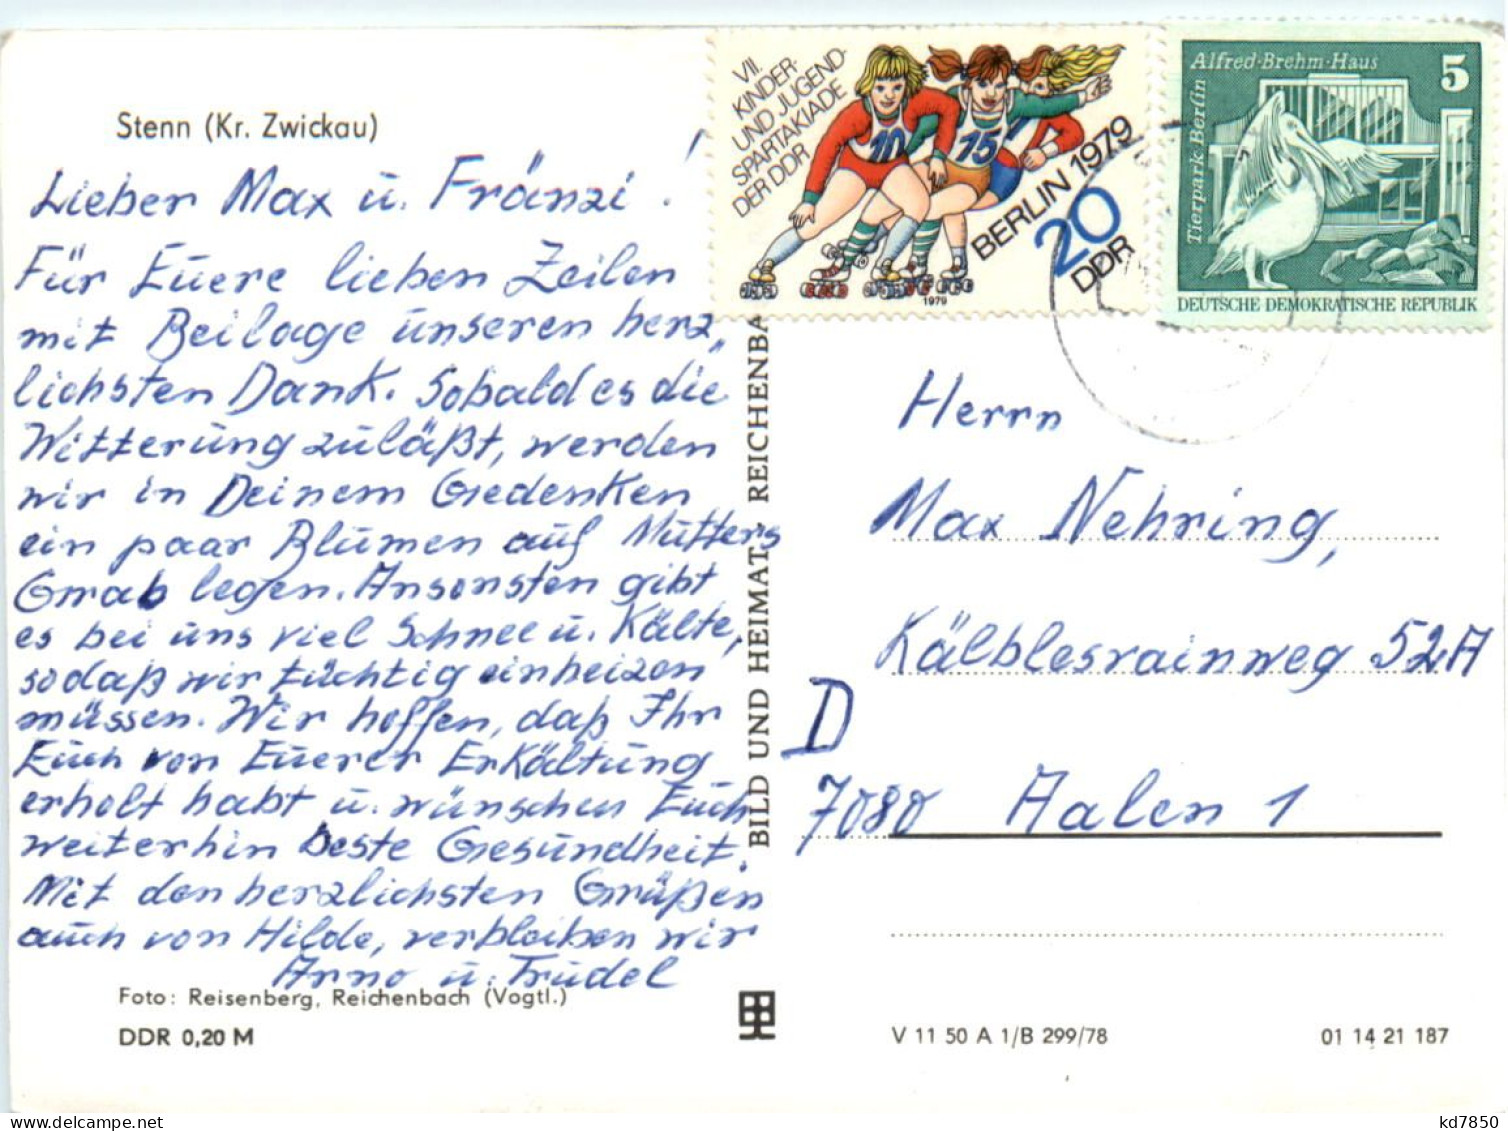 Stenn (Kr. Zwickau)
Lieber Max u. Fränzi!
Für Euere lieben Zeilen
mit Beilage unseren herz„
lichsten Dank. Sobald es die
Witterung zuläßt, werden
wir in Deinem Gedenken
ein paar Blumen auf Mutters
Grab legen. Ansonsten gibt
es bei uns viel Schnee u. Kälte,
sodaß wir tüchtig einheizen
müssen. Wir hoffen, daß Ihr
Euch von Euerer Erkältung
erholt habt u. wünschen Euch
weiterhin beste Gesundheit.
Mit den herzlichsten Grüßen
auch von Hilde, verbleiben wir
Arno u. Trudel
Foto: Reisenberg, Reichenbach (Vogtl.)
DDR 0,20 M
BILD UND HEIMAT REICHENBA
VII.
KINDER-
UND JUGEND-
SPARTAKIADE
DER DDR
10
15
BERLIN 1979
20
DDR
1979
Alfred-Brehm-Haus
5
Tierpark Berlin
DEUTSCHE DEMOKRATISCHE REPUBLIK
Herrn
Max Nehring,
Kälblesrainweg 52A
D
7080 Aalen 1
V 11 50 A 1/B 299/78
01 14 21 187
kd7850